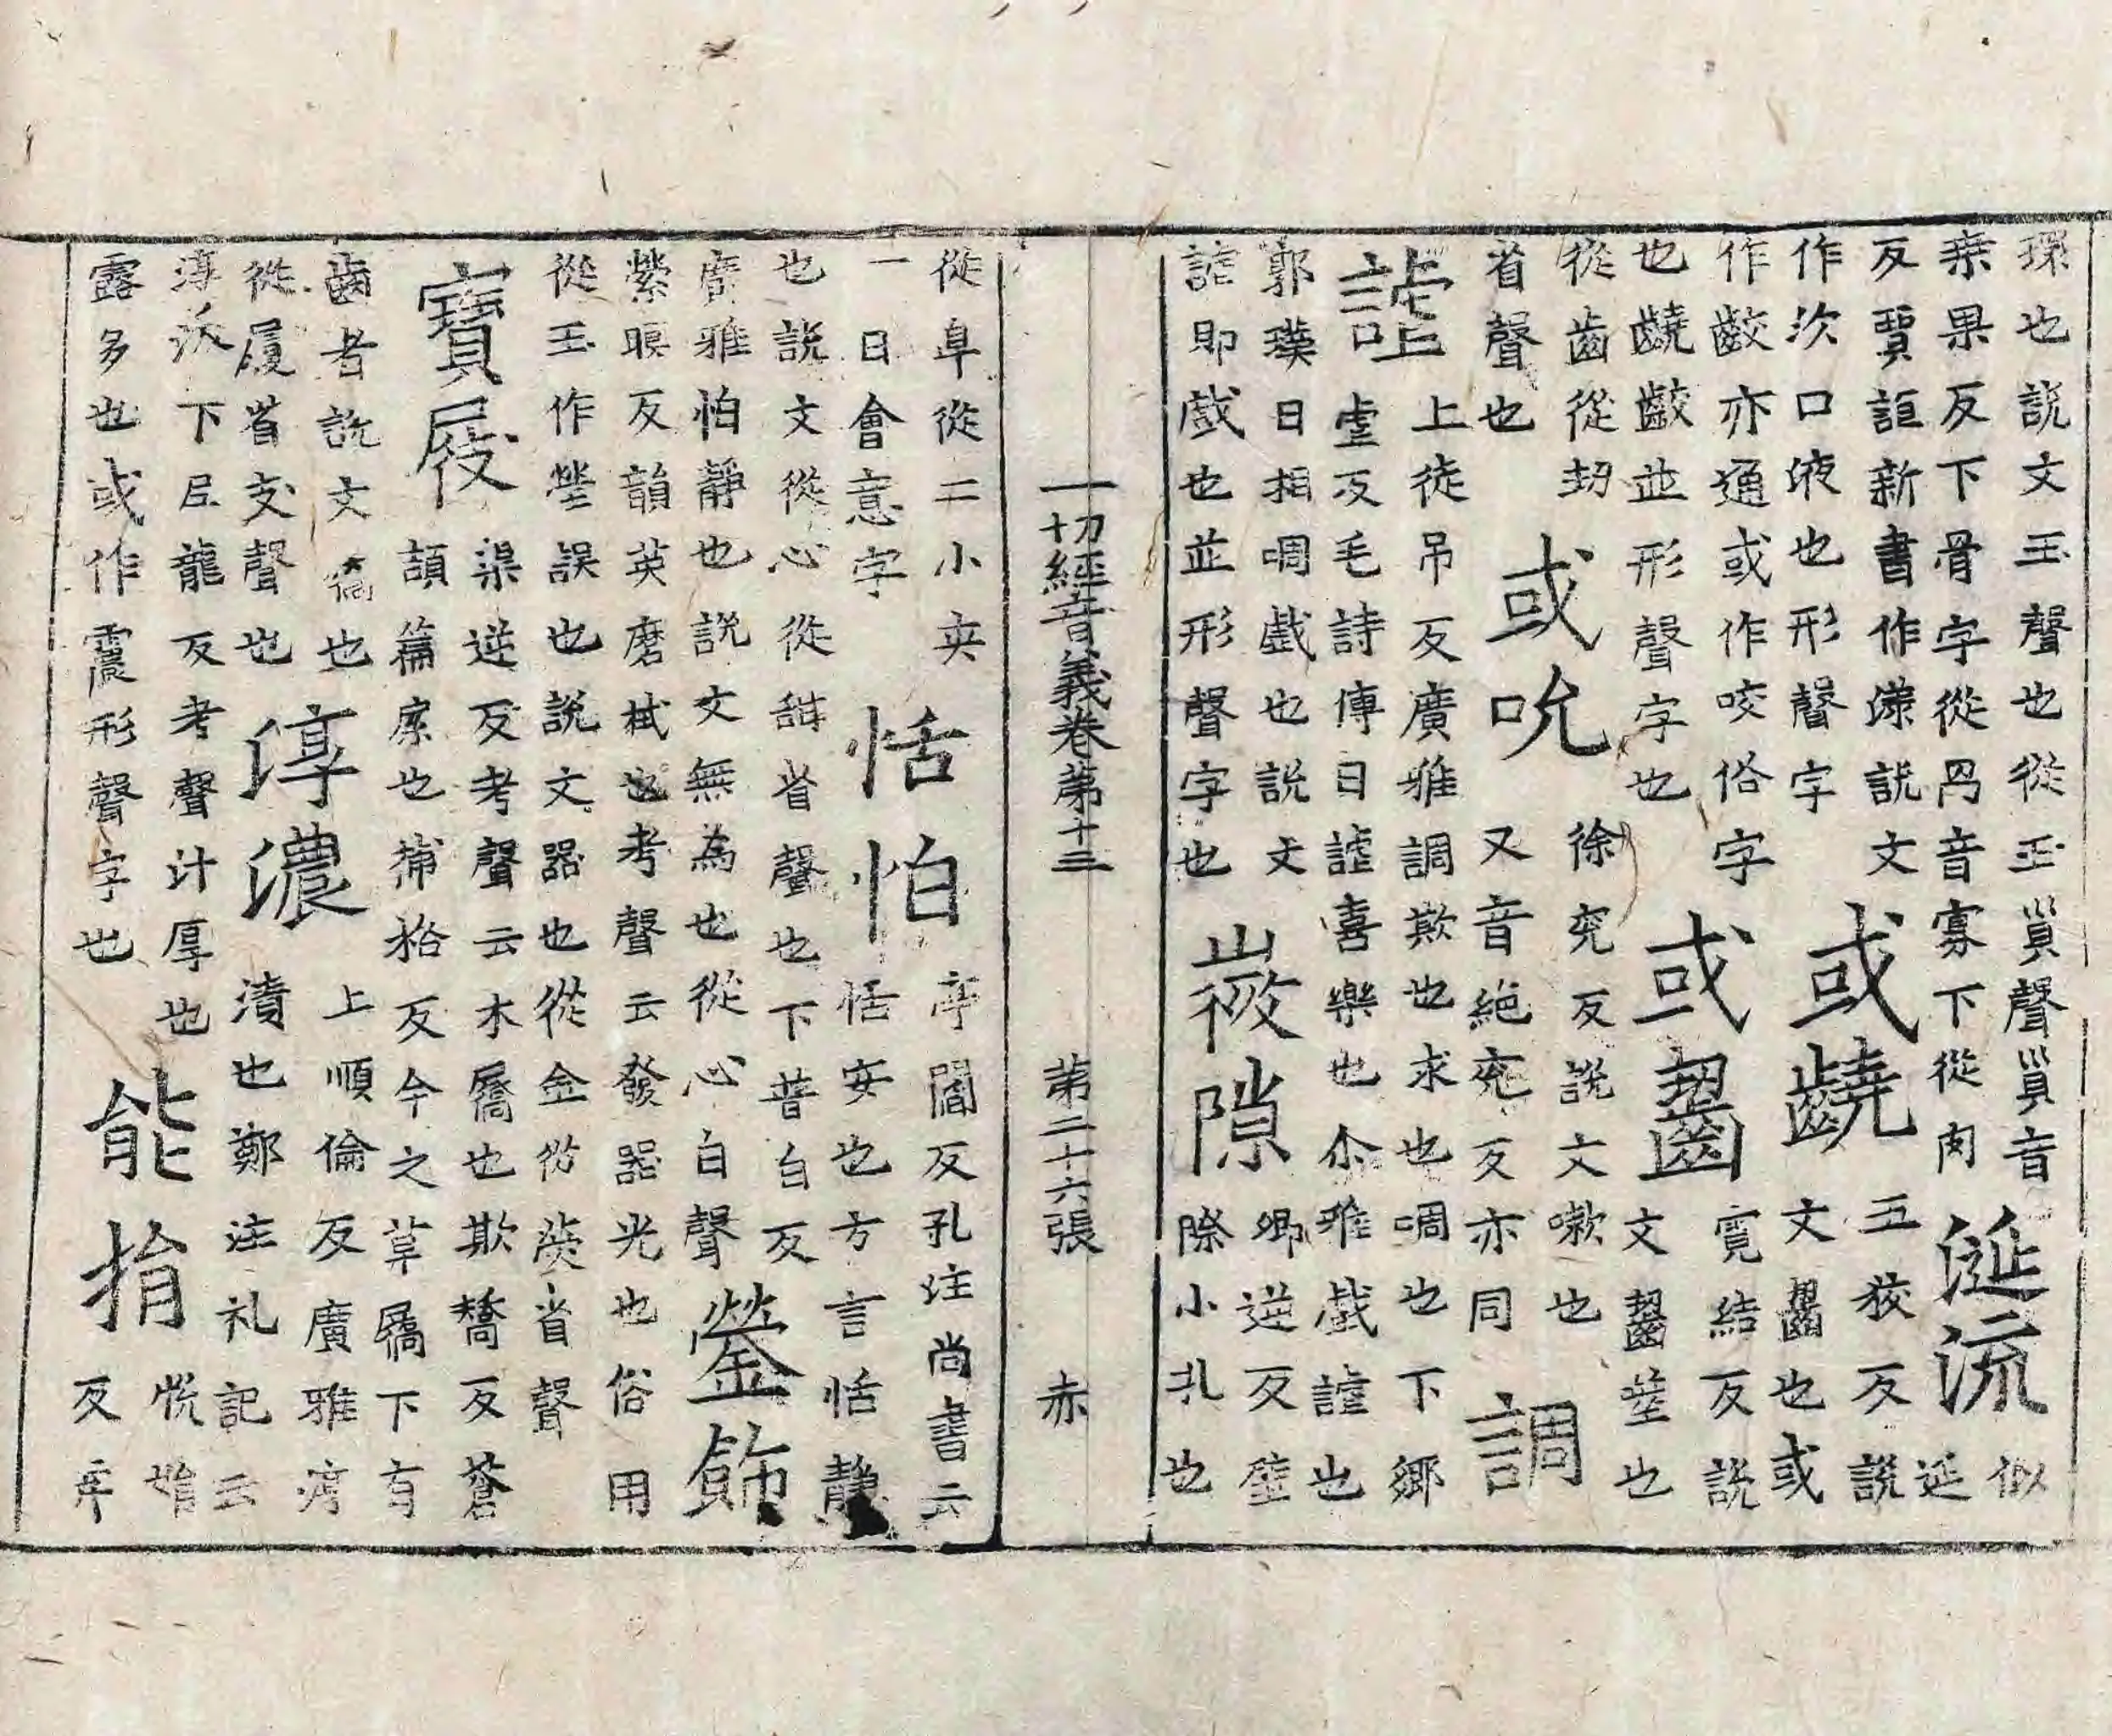 𤨏也說文玉聲也從玉𧴪聲𧴪音
桒果反下骨字從冎音寡下從肉
涎流
似延
反賈誼新書作㳄說文
作㳄口液也形聲字
或齩
五狡反說文齧也或
作齩亦通或作咬俗字
或齧
霓結反說文齧噬也
也齩齩並形聲字也
從齒從㓞
或吮
徐兖反說文嗽也
又音絕兖反亦同
省聲也
調謔
上徒吊反廣雅調欺也求也啁也下鄉
虐反毛詩傳曰謔喜樂也尒雅戲謔也
郭璞曰相啁戲也說文
謔即戲也並形聲字也
㠁隙
卿逆反壁
際小孔也
一切經音義卷第十三
第二十六張
赤
從𨸏從二小夾
一日會意字
恬怕
序閻反孔注尚書云
恬安也方言恬靜
也說文從心從甜省聲也下普白反
廣雅怕靜也說文無為也從心白聲
鎣飾
縈暝反韻英磨拭也考聲云發器光也俗用
從玉作瑩誤也說文器也從金從熒省聲
寶屐
渠逆反考聲云木屩也欺矯反蒼
頡篇屩也捕袷反今之草屩下有
齒者說文屩也
從履省支聲也
淳濃
上順倫反廣雅淳
漬也鄭注礼記云
淳沃下尼龍反考聲汁厚也
露多也或作震形聲字也
能捐
恱㨒
反弃